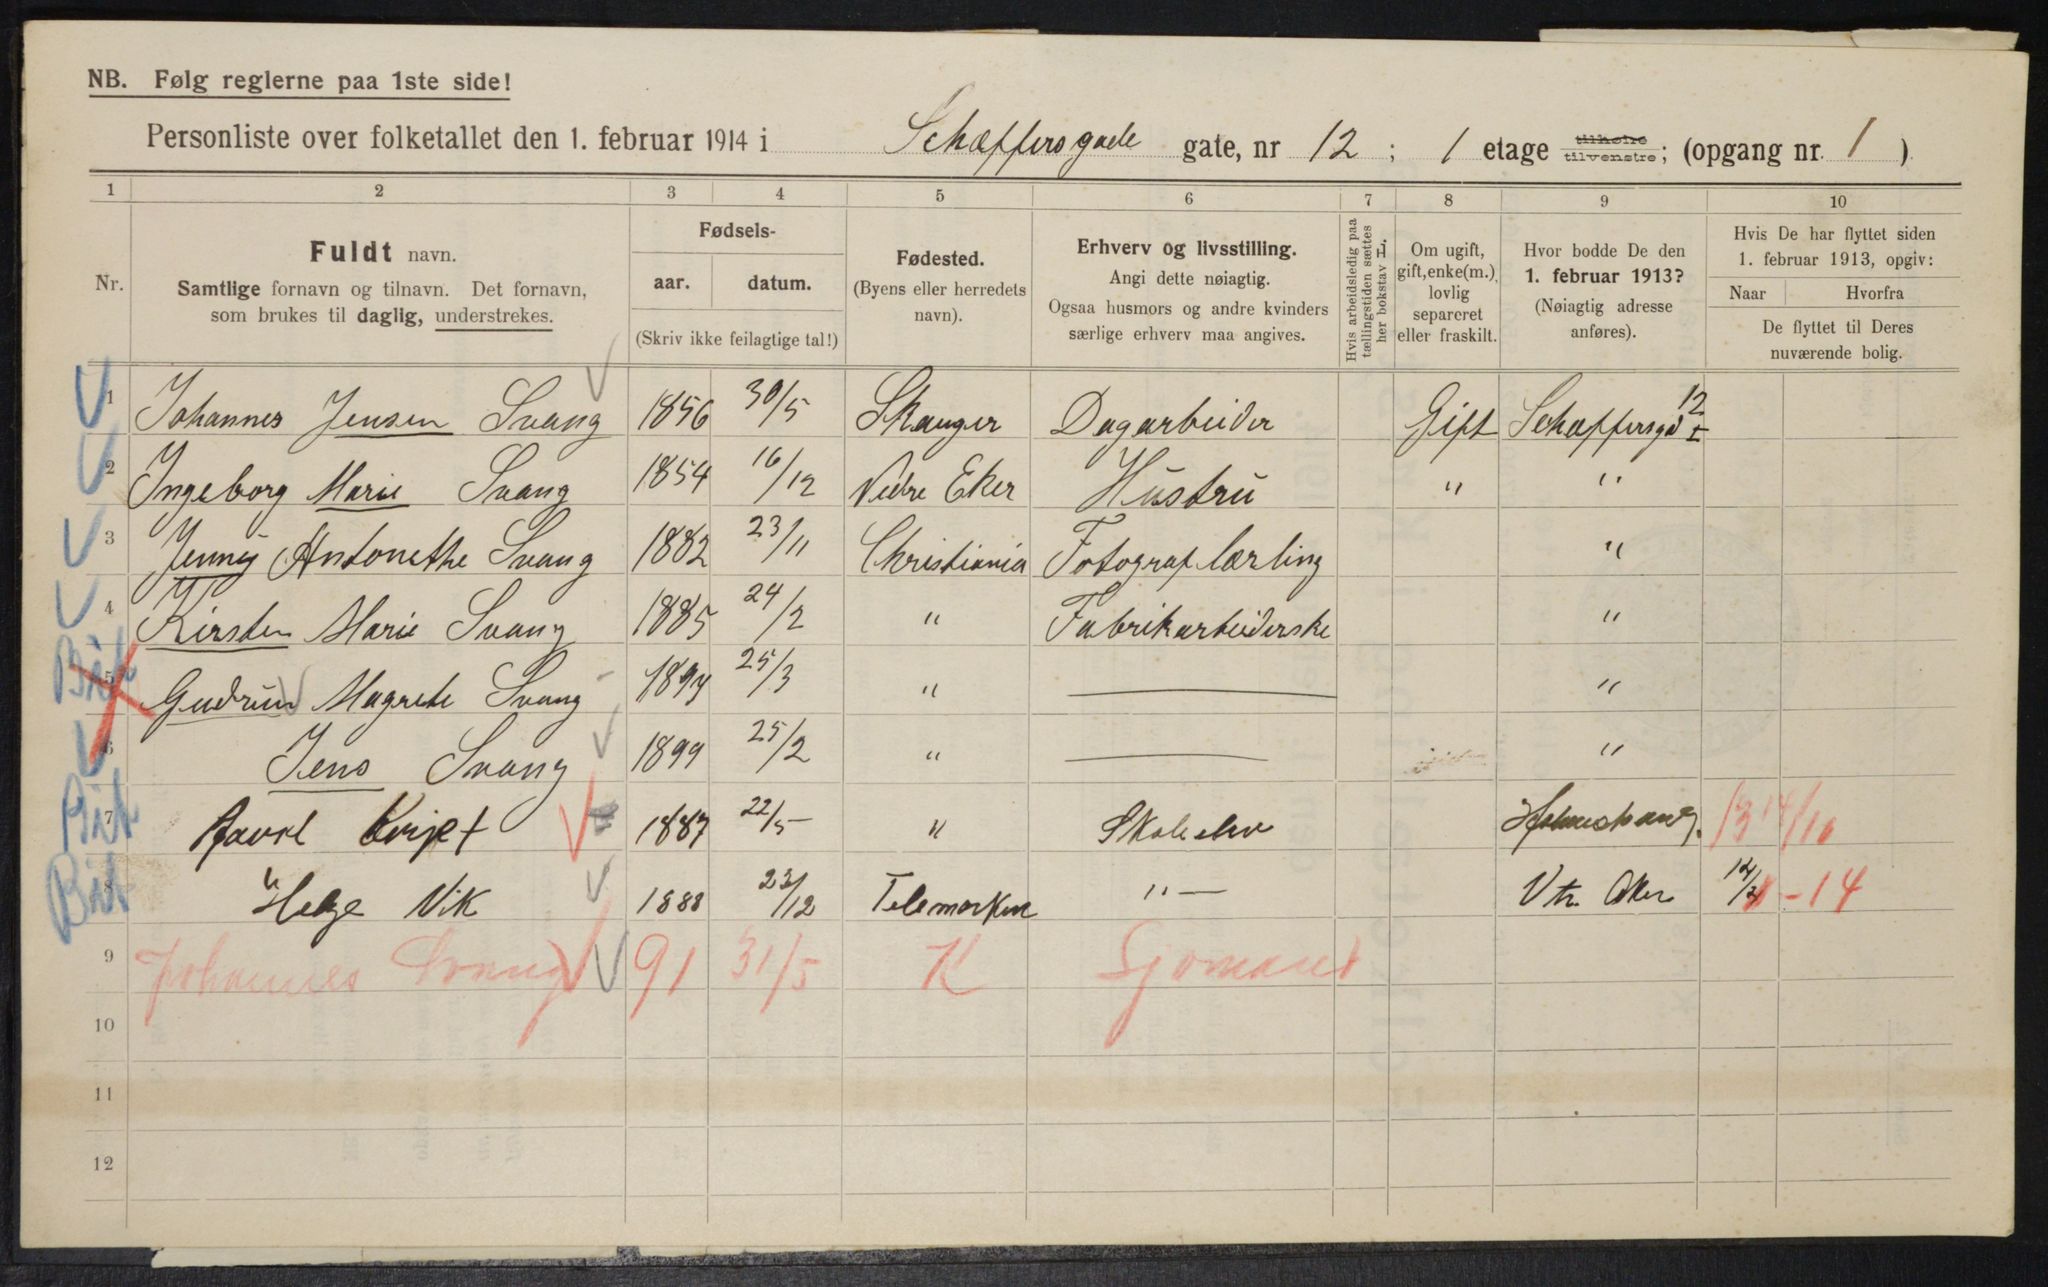 NB. Følg reglerne paa 1ste side!
Personliste over folketallet den 1. februar 1914 i Schæffersgade gate, nr 12 ; 1 etage tilhøire tilvenstre; (opgang nr. 1 )
1 2 3 4 5 6 7 8 9 10
Nr.
Fuldt navn.
Samtlige fornavn og tilnavn. Det fornavn,
som brukes til daglig, understrekes.
Fødsels-
aar. datum.
(Skriv ikke feilagtige tal!)
Fødested.
(Byens eller herredets
navn).
Erhverv og livsstilling.
Angi dette nøiagtig.
Ogsaa husmors og andre kvinders
særlige erhverv maa angives.
Hvis arbeidsledig paa
tællingstiden sættes
her bokstav L.
Om ugift,
gift, enke(m.),
lovlig
separeret
eller fraskilt.
Hvor bodde De den
1. februar 1913?
(Nøiagtig adresse
anføres).
Hvis De har flyttet siden
1. februar 1913, opgiv:
Naar Hvorfra
De flyttet til Deres
nuværende bolig.
1 Johannes Jensen Svang 1856 30/5 Skauger Dagarbeider Gift Schæffersgd 12 I
2 Ingeborg Marie Svang 1854 16/12 Nedre Eker Hustru " "
3 Jenny Antonethe Svang 1882 23/11 Christiania Fotograf lærling "
4 Kirsten Marie Svang 1885 24/2 " Fabrikarbeiderske "
5 Gudrun Magrete Svang 1897 25/3 " — "
6 Jens Svang 1899 25/2 " — "
7 1887 22/5 " Skoleelev Holmestrand. 13 14/10
8 Helge Vik 1888 23/12 Telemarken " — V. Aker 14
9 Johannes Svang 91 31/5 K Sjømand
10
11
12